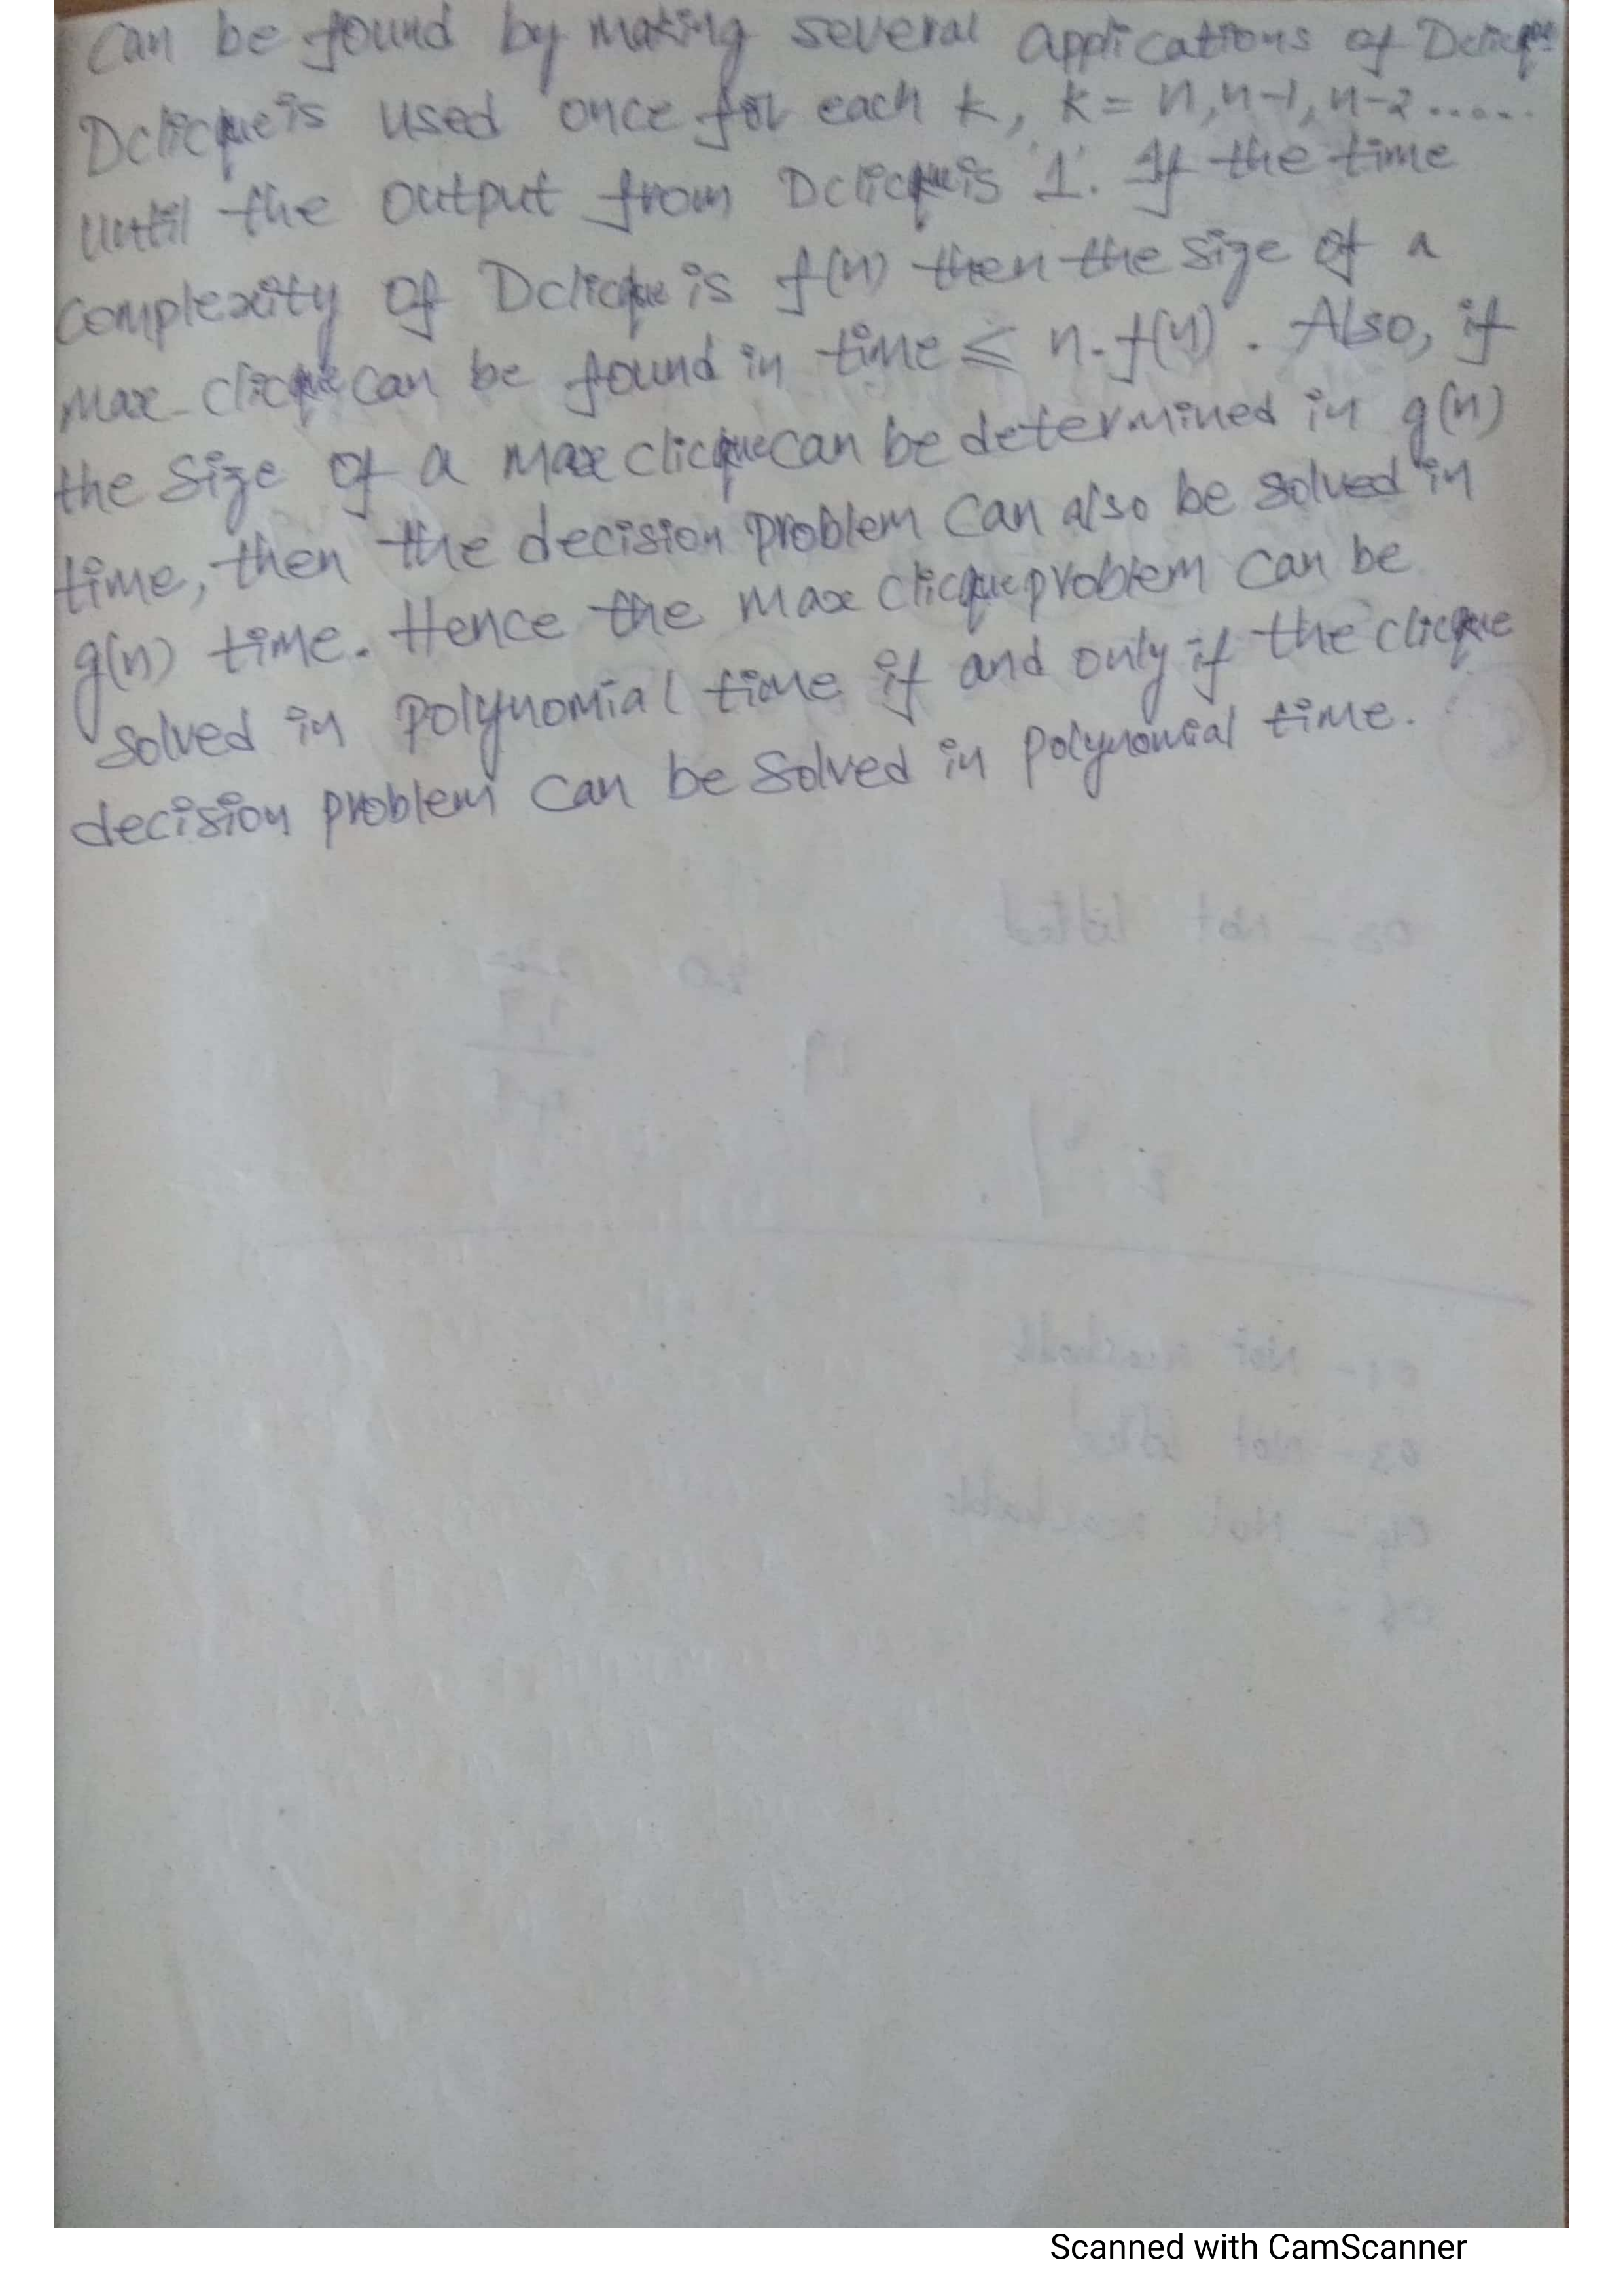 Can be found by making several applications of Dclicque
Dclicque is used once for each k, k = n, n-1, n-2 ......
until the output from Dclicque is '1'. If the time
complexity of Dclicque is f(n) then the size of a
max-clicque can be found in time ≤ n.f(n). Also, if
the size of a max clicque can be determined in g(n)
time, then the decision problem can also be solved in
g(n) time. Hence the max clicque problem can be
solved in polynomial time if and only if the clicque
decision problem can be solved in polynomial time.
Scanned with CamScanner